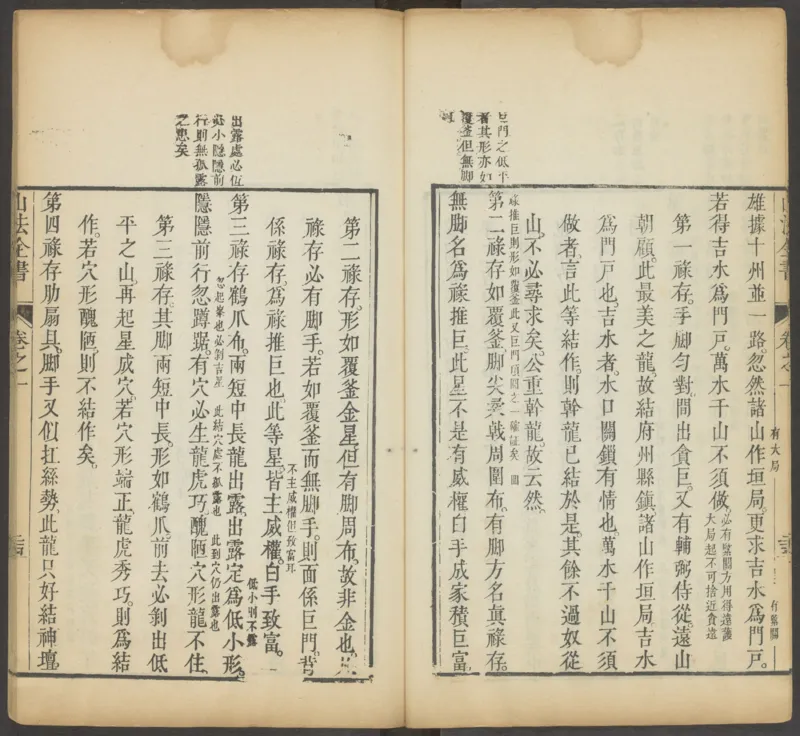 雄據十州並一路。忽然諸山作垣局。更求吉水爲門戸。
有大局
有緊關
若得吉水爲門戸。萬水千山不須做。
必有緊關方用得遠護
大局起不可捨近貪遠
第一祿存。手脚勻對。間出貪巨。又有輔弼侍從。遠山
朝顧。此最美之龍。故結府州縣鎮。諸山作垣局。吉水
爲門戸也。吉水者。水口關鎖有情也。萬水千山不須
做者。言此等結作。則幹龍已結於是。其餘不過奴從
山。不必尋求矣。公重幹龍。故云然。
祿推巨則形如覆釜此又巨門項圓之一確証矣
第二祿存如覆釜。脚尖
戟周圍布。有脚方名眞祿存。
無脚名爲祿推巨。此星不是有威權。白手成家積巨富。
巨門之低平
者其形亦如
覆釜但無脚
第二祿存。形如覆釜金星。但有脚周布。故非金也。
祿存必有脚手。若如覆釜而無脚手。則面係巨門。背
係祿存。爲祿推巨也。此等星。皆主威權。白手致富。
不主威權但致富耳
第三祿存鶴爪布。兩短中長龍出露。出露定爲低小形。
低小則不露
隱隱前行忽蹲踞。有穴必生龍虎巧。醜陋穴形龍不住。
忽起峯也必剝吉星
此結穴處不孤露也
此到穴仍出露也
出露處必伍
小隱隱前
行則無孤露
之患矣
第三祿存。其脚兩短中長。形如鶴爪。前去必剝出低
平之山。再起星成穴。若穴形端正。龍虎秀巧。則爲結
作。若穴形醜陋則不結作矣。
第四祿存肋扇具。脚手又似扛絲勢。此龍只好結神壇。
山法全書
卷之一